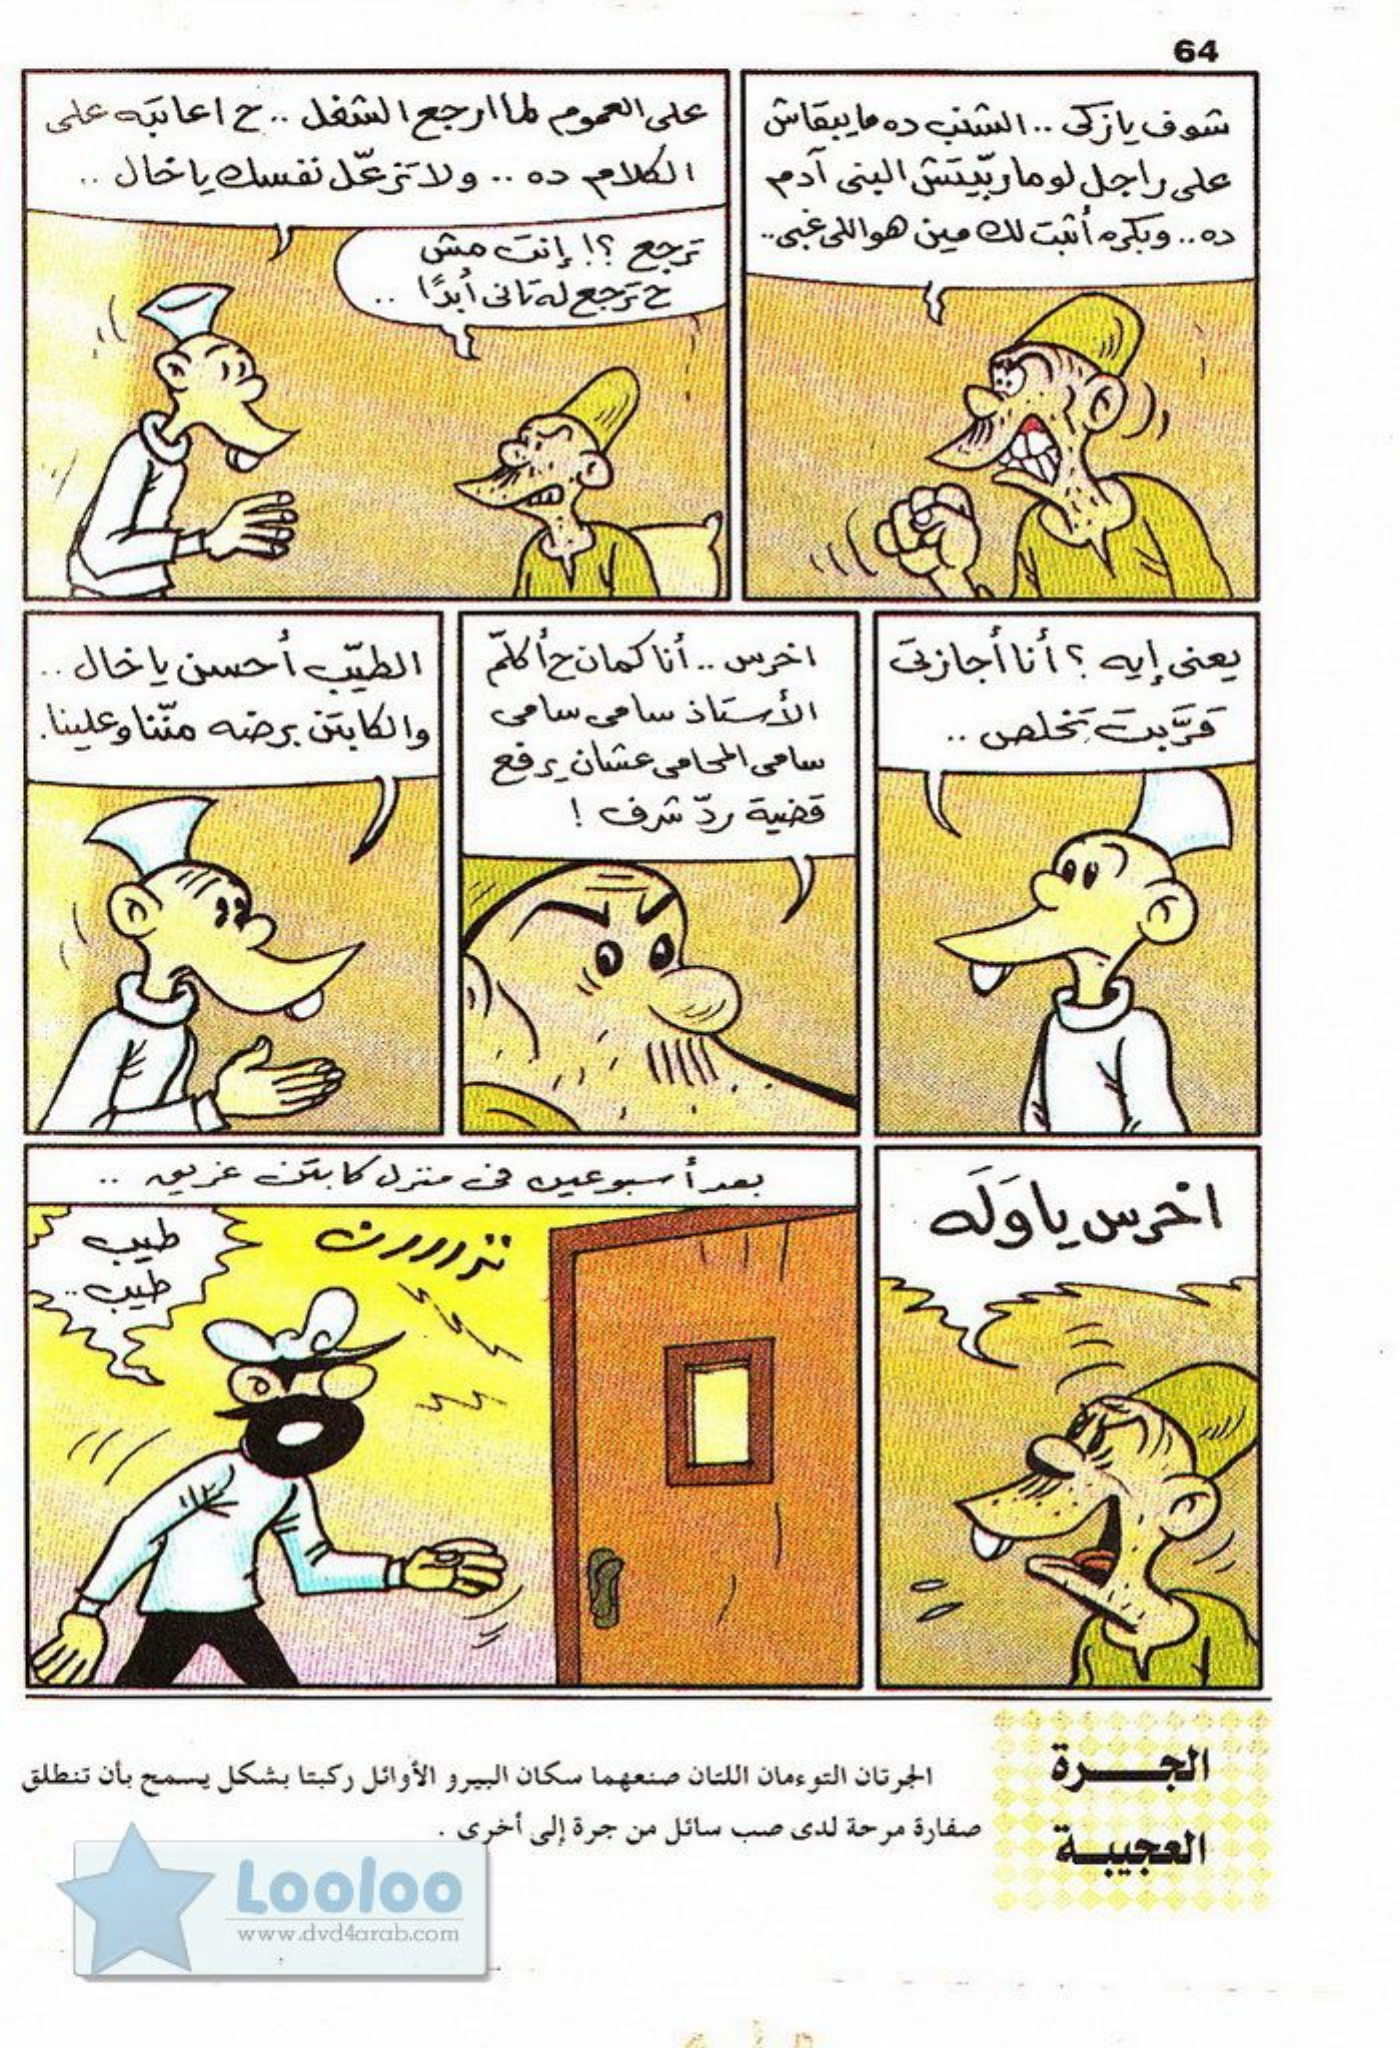 64
شوف يا زكى .. الشنب ده ما يبقاش
على راجل لو ما ربّيتش البنى آدم
ده .. وبكره أثبت لك مين هو اللى غبى ..
على العموم لما ارجع الشغل .. ح اعاتبه على
الكلام ده .. ولا تزعّل نفسك يا خال ..
ترجع ؟! إنت مش
ح ترجع له تانى أبدًا ..
يعنى إيه ؟ أنا أجازتى
قرَّبت تخلص ..
اخرس .. أنا كمان ح أكلّم
الأستاذ سامى سامى
سامى المحامى عشان يرفع
قضية ردّ شرف !
الطيّب أحسن يا خال ..
والكابتن برضه منّنا وعلينا .
اخرس يا وَلَه
بعد أسبوعين فى منزل كابتن غريق ..
تررررن
طيب
طيب ..
الجـــرة
العجيبـة
الجرتان التوءمان اللتان صنعهما سكان البيرو الأوائل ركبتا بشكل يسمح بأن تنطلق
صفارة مرحة لدى صب سائل من جرة إلى أخرى .
Looloo
www.dvd4arab.com